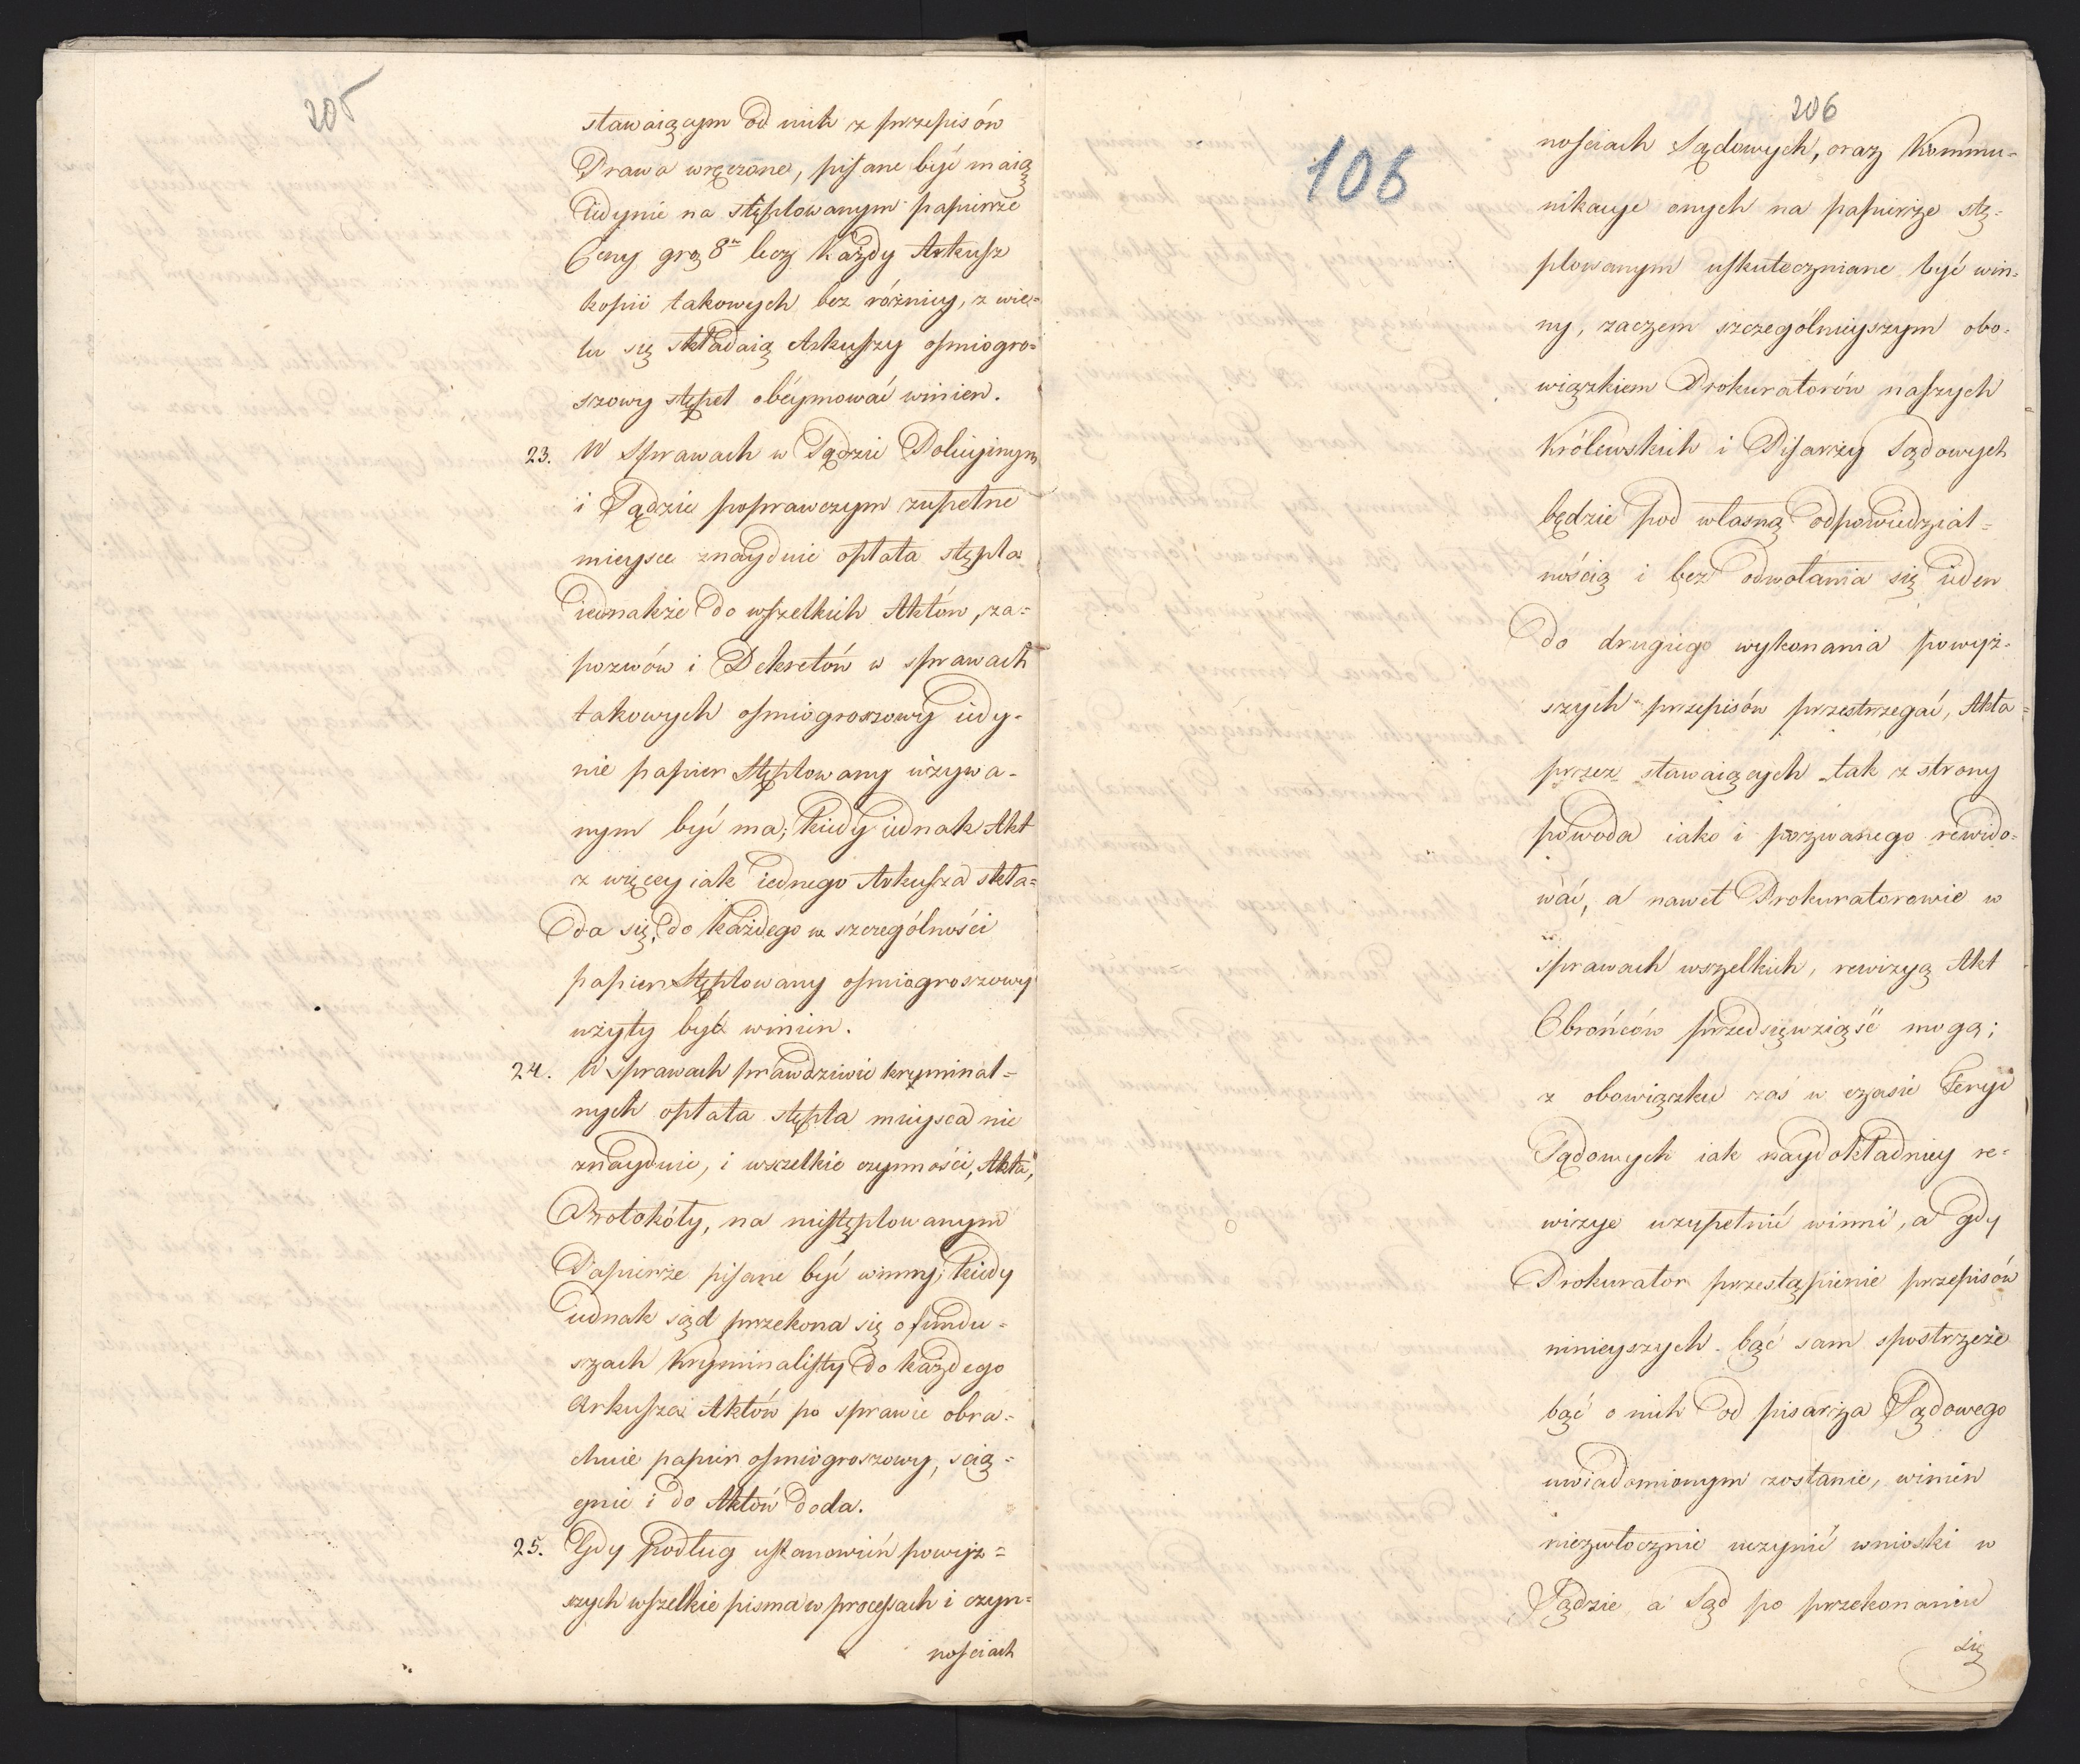 205
stawaiącym od nich z przepisów
Prawa wręczone, pisane być maią
iedynie na stęplowanym papierze
Ceny gro 8ᵐ lecz każdy Arkusz
kopii takowych bez różnicy, z wie-
lu się składaią Arkuszy osmiogro-
szowy stępel obeymować winien.
23. W Sprawach w Sądzie Policyinym
i Sądzie poprawczym zupełne
mieysce znayduie opłata stępla
iednakże do wszelkich Aktów, za-
pozwów i Dekretów w sprawach
takowych osmiogroszowy iedy-
nie papier Stęplowany używa-
nym być ma; kiedy iednak Akt
z więcey iak iednego Arkusza skła-
da się, do każdego w szczególności
papier Stęplowany osmiogroszowy
użyty być winien.
24. W sprawach prawdziwie kryminal-
nych opłata stępla mieysca nie
znayduie, i wszelkie czynności, Akta,
Protokóły, na niestęplowanym
Papierze pisane być winny; kiedy
iednak sąd przekona się o fundu-
szach Kryminalisty do każdego
Arkusza Aktów po sprawie obra-
chuie papier osmiogroszowy, ścią-
gnie i do Aktów doda.
25. Gdy podług ustanowień powyż-
szych wszelkie pisma w processach i czyn-
nosciach
206
106
nosciach Sądowych, oraz Kommu-
nikacye onych na papierze stę-
plowanym uskuteczniane być win-
ny, zaczem szczególnieyszym obo-
wiązkiem Prokuratorów naszych
Królewskich i Pisarzy Sądowych
będzie pod własną odpowiedzial-
nością i bez odwołania się ieden
do drugiego wykonania powyż-
szych przepisów przestrzegać, Akta
przez stawaiących tak z strony
powoda iako i pozwanego rewido-
wać, a nawet Prokuratorowie w
sprawach wszelkich, rewizyą Akt
Obrońców przedsięwziąść mogą;
z obowiązku zaś w czasie Feryi
Sądowych iak naydokładniey re-
wizye uzupełnić winni, a gdy
Prokurator przestąpienie przepisów
ninieyszych bąć sam spostrzeże
bąć o nich od pisarza Sądowego
uwiadomionym zostanie, winien
niezwłocznie uczynić wnioski w
Sądzie a Sąd po przekonaniu
się